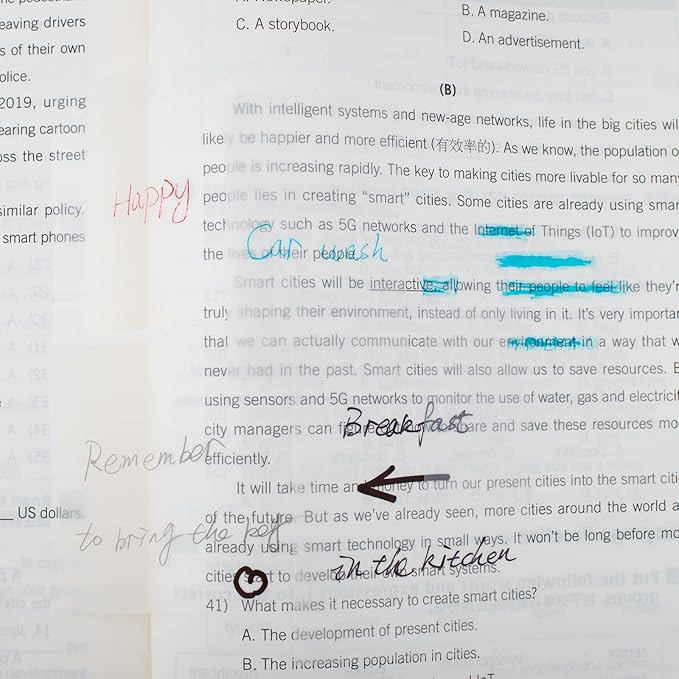 eaving drivers
s of their own
olice.
2019, urging
earing cartoon
oss the street
similar policy.
smart phones
US dollars.
C. A storybook.
B. A magazine.
D. An advertisement.
(B)
With intelligent systems and new-age networks, life in the big cities will
likely be happier and more efficient (有效率的). As we know, the population o
people is increasing rapidly. The key to making cities more livable for so many
people lies in creating “smart” cities. Some cities are already using smar
Happy
technology such as 5G networks and the Internet of Things (IoT) to improv
the lives of their people.
Car wash
Smart cities will be interactive, allowing their people to feel like they'r
truly shaping their environment, instead of only living in it. It's very importan
that we can actually communicate with our environment in a way that w
never had in the past. Smart cities will also allow us to save resources. B
using sensors and 5G networks to monitor the use of water, gas and electricit
city managers can and save these resources mo
Breakfast
efficiently.
Remember
It will take time and money to turn our present cities into the smart citi
of the future. But as we've already seen, more cities around the world a
to bring the key
already using smart technology in small ways. It won't be long before mo
in the kitchen
cities start to develop their own smart systems.
41) What makes it necessary to create smart cities?
A. The development of present cities.
B. The increasing population in cities.